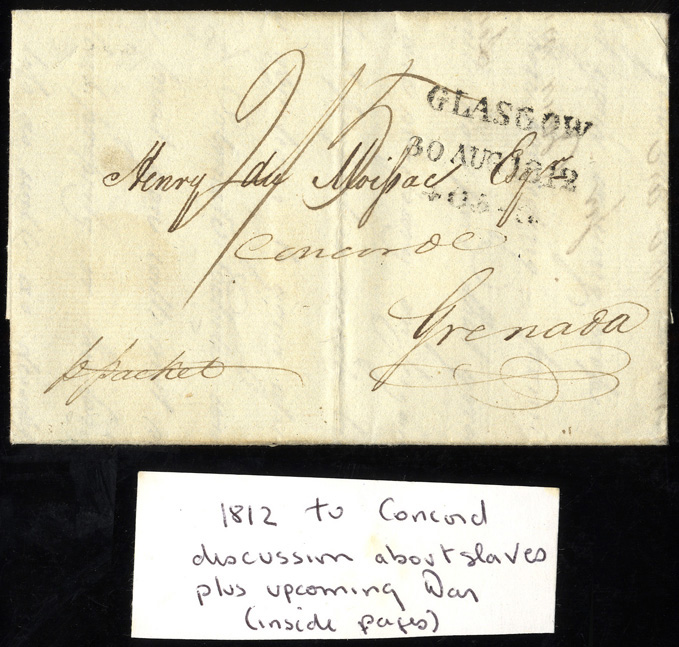 2/5
GLASGOW
30 AUG 1812
405
Henry du Moissac Esqr
Concorde
Grenada
p packet
1812 to Concord
discussion about slaves
plus upcoming War
(inside pages)